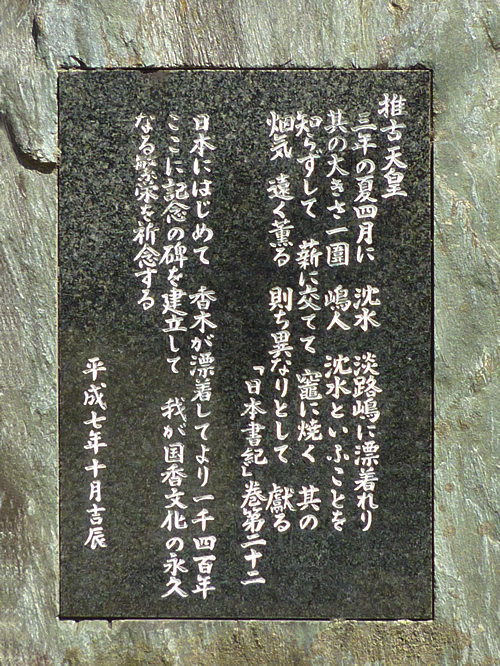 推古天皇
三年の夏四月に 沈水 淡路嶋に漂着れり
其の大きさ一圍 嶋人 沈水といふことを
知らずして 薪に交てて 竈に焼く 其の
烟気 遠く薫る 則ち異なりとして 獻る
「日本書紀」巻第二十二
日本にはじめて 香木が漂着してより一千四百年
ここに記念の碑を建立して 我が国香文化の永久
なる繁栄を祈念する
平成七年十月吉辰